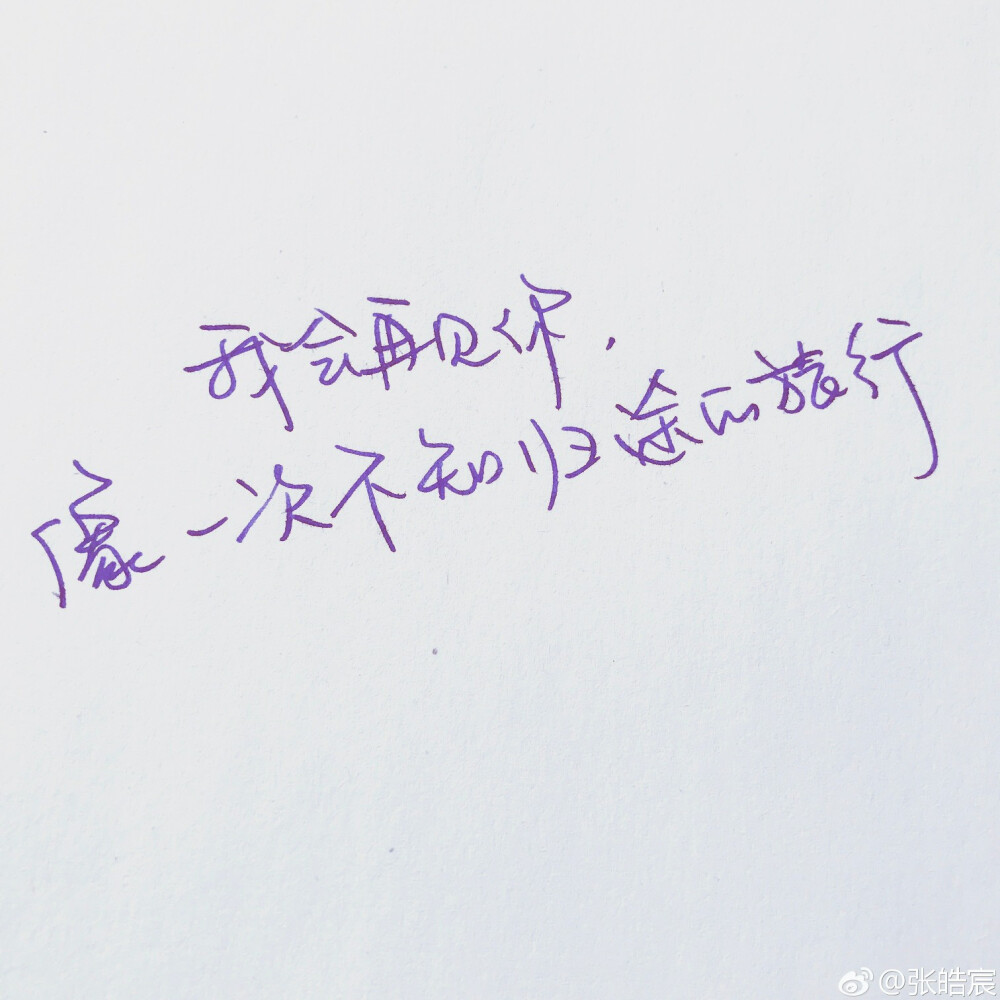 我会再见你，
像一次不知归途的旅行
@张皓宸